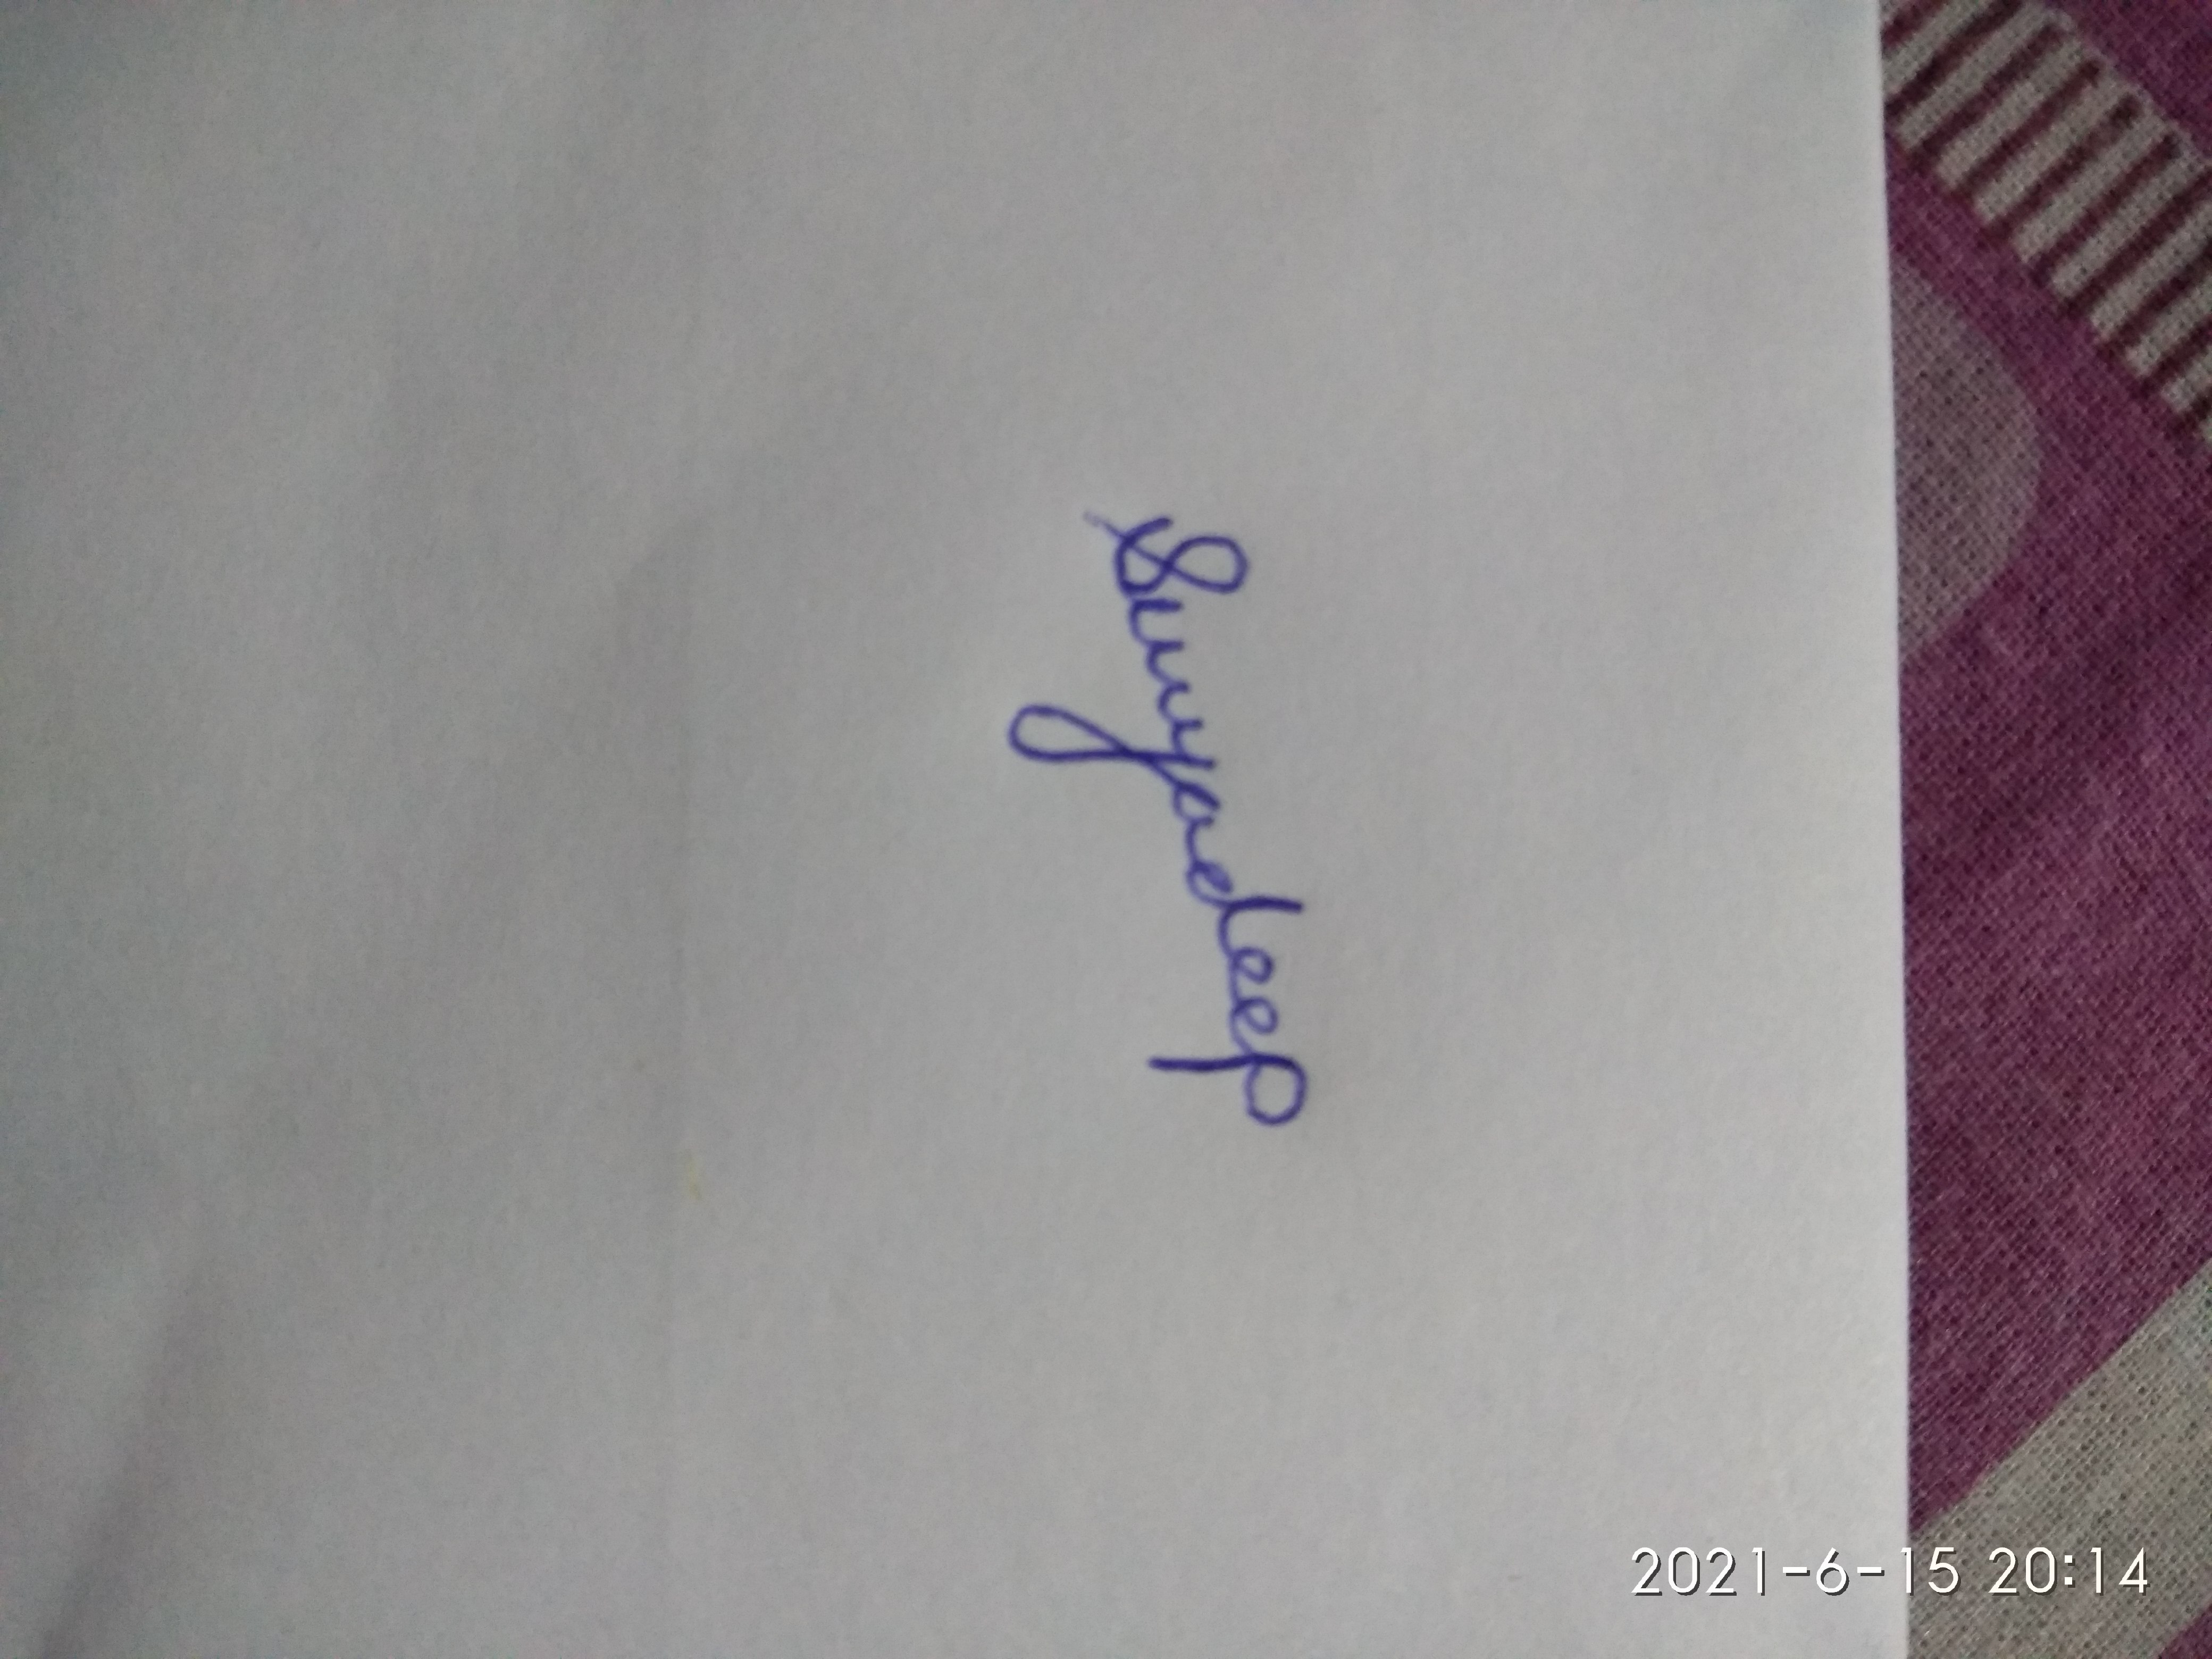 Suryadeep
2021-6-15 20:14